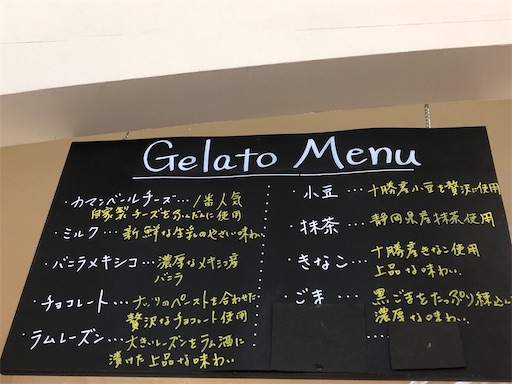 Gelato Menu
・カマンベールチーズ…1番人気
自家製チーズをふんだんに使用
・ミルク…新鮮な生乳のやさしい味わい
・バニラメキシコ…濃厚なメキシコ産
バニラ
・チョコレート…ナッツのペーストを合わせた
贅沢なチョコレート使用
・ラムレーズン…大きいレーズンをラム酒に
漬けた上品な味わい
・小豆…十勝産小豆を贅沢に使用
・抹茶…静岡県産抹茶使用
・きなこ…十勝産きなこ使用
上品な味わい
・ごま…黒ごまをたっぷり練込
濃厚な味わい